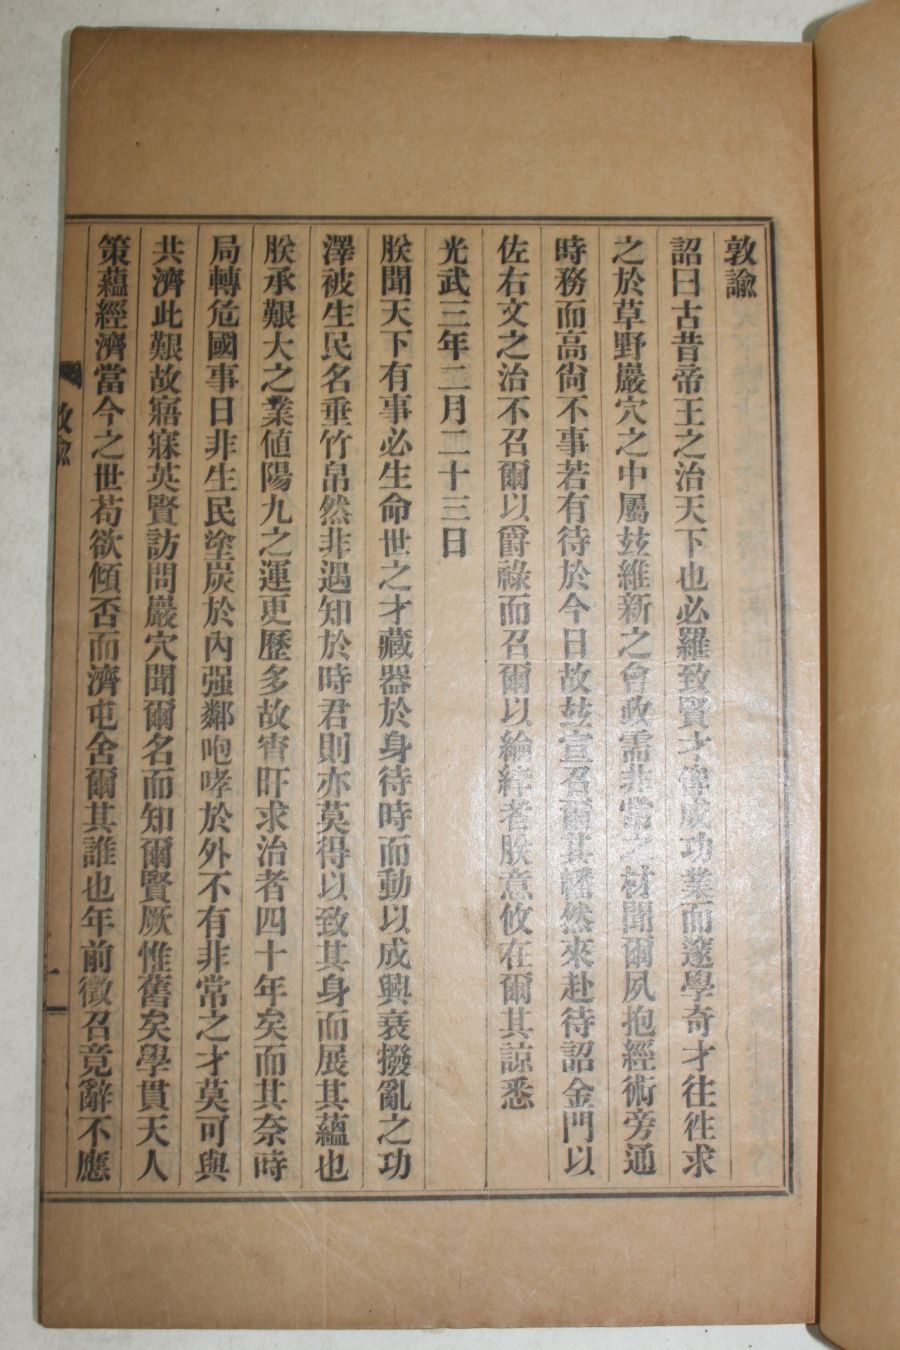 敦諭
詔曰古昔帝王之治天下也必羅致賢才俾成功業而邃學奇才往徃求
之於草野巖穴之中屬玆維新之會政需非常之材聞爾夙抱經術旁通
時務而高尙不事若有待於今日故玆宣召爾其幡然來赴待詔金門以
佐右文之治不召爾以爵祿而召爾以綸綍者朕意攸在爾其諒悉
光武三年二月二十三日
朕聞天下有事必生命世之才藏器於身待時而動以成興衰撥亂之功
澤被生民名垂竹帛然非遇知於時君則亦莫得以致其身而展其蘊也
朕承艱大之業値陽九之運更歷多故宵旰求治者四十年矣而其奈時
局轉危國事日非生民塗炭於內强鄰咆哮於外不有非常之才莫可與
共濟此艱故寤寐英賢訪問巖穴聞爾名而知爾賢厥惟舊矣學貫天人
策蘊經濟當今之世苟欲傾否而濟屯舍爾其誰也年前徵召竟辭不應
敦諭
一